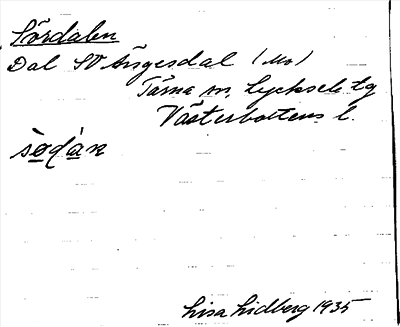 Sördalen
Dal SV Ängesdal (Mo)
Tärna sn, Lycksele tg
Västerbottens l.
sö̀dàn
Lisa Lidberg 1935